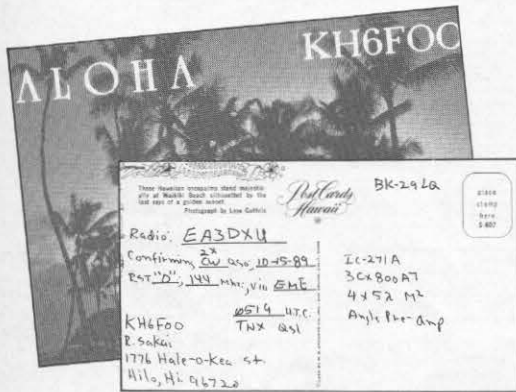 ALOHA
KH6FOO
Three Hawaiian coconut palms stand majestically
at Waikiki Beach silhouetted by the
last rays of a golden sunset.
Photograph by
Post Cards
Hawaii
BK-29LQ
place
stamp
here
Radio: EA3DXU
Confirming 2X CW QSO, 10-15-89
RST "O", 144 Mhz, Via EME
0519 U.T.C.
TNX QSL
KH6FOO
R. Sakai
1776 Hale-o-Kea St.
Hilo, Hi 96720
IC-271A
3CX800A7
4 x 52 M²
Angle Pre-amp